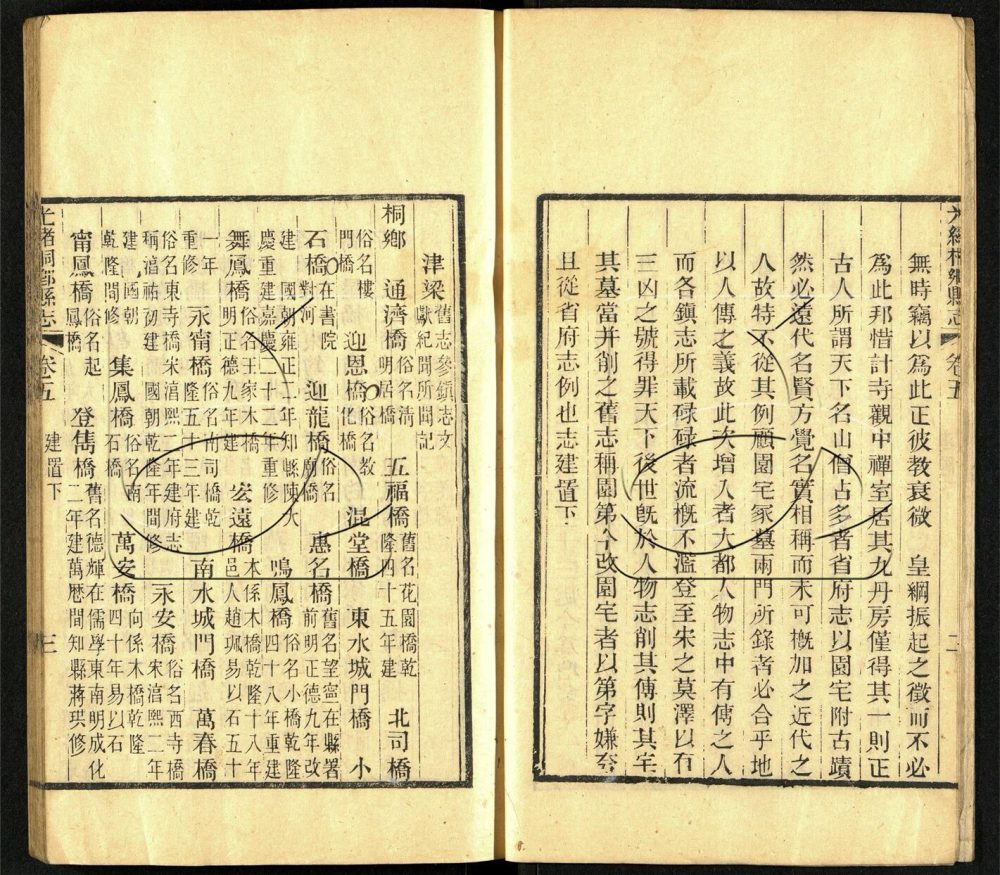 無時竊以爲此正彼教衰微　皇綱振起之徵而不必
爲此邦惜計寺觀中禪室居其九丹房僅得其一則正
古人所謂天下名山僧占多者省府志以園宅附古蹟
然必遠代名賢方覺名實相稱而未可概加之近代之
人故特不從其例顧園宅冢墓兩門所錄者必合乎地
以人傳之義故此次增入者大都人物志中有傳之人
而各鎮志所載碌碌者流概不濫登至宋之莫澤以有
三凶之號得罪天下後世旣於人物志削其傳則其宅
其墓當并削之舊志稱園第今改園宅者以第字嫌夸
且從省府志例也志建置下
光緒桐鄉縣志
卷五
二
津梁舊志參鎮志文獻紀聞所聞記
桐鄉　通濟橋俗名清明居橋　五福橋舊名花園橋乾隆四十五年建　北司橋
俗名樓門橋　迎恩橋俗名教化橋　混堂橋　東水城門橋　小
石橋在書院對河　迎龍橋俗名廟橋　惠名橋舊名望寧在縣署前明正德九年改
建　國朝雍正二年知縣陳大慶重建嘉慶二十二年重修　鳴鳳橋俗名小橋乾隆四十八年重建
舞鳳橋俗名王家木橋明正德九年建　宏遠橋本係木橋乾隆十八年邑人趙珮易以石五十
一年重修　永甯橋俗名南司橋乾隆五十三年建　南水城門橋　萬春橋
俗名東寺橋宋淳熙二年建府志稱淳祐剏建　國朝乾隆年間修　永安橋俗名西寺橋宋淳熙二年
建　國朝乾隆間修　集鳳橋俗名南石橋　萬安橋向係木橋乾隆四十年易以石
甯鳳橋俗名起鳳橋　登儁橋舊名德輝在儒學東南明成化二年建萬歷間知縣蔣珙修
光緒桐鄉縣志
卷五
建置下
三